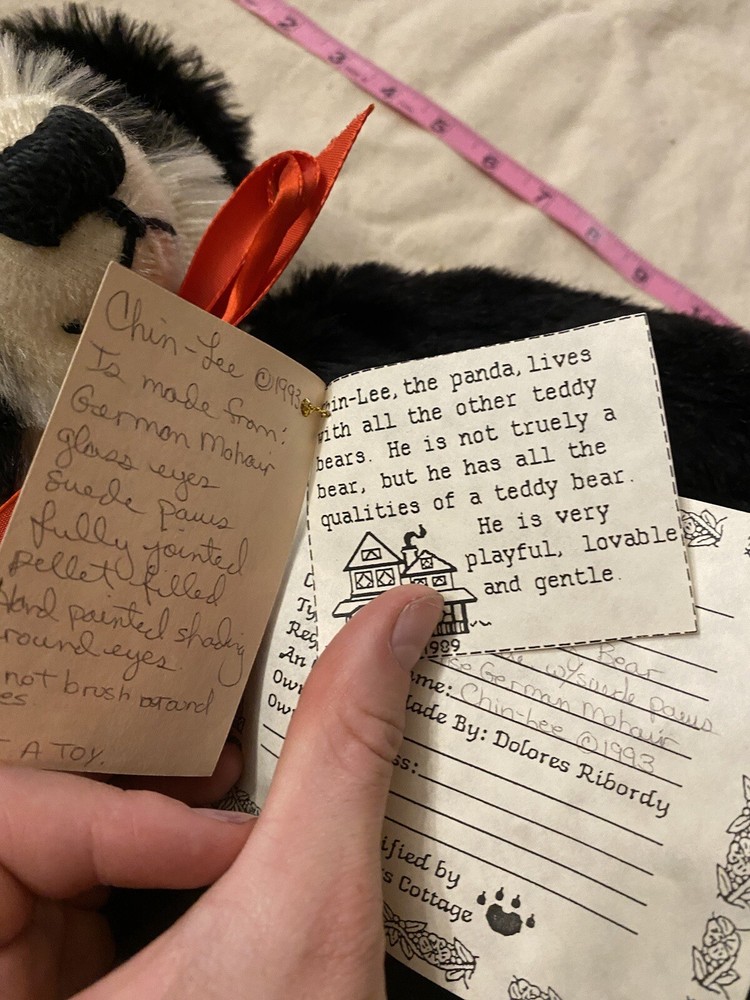 2 3 4 5 6 7 8 9
Chin-Lee ©1993
Is made from:
German Mohair
glass eyes
Suede paws
fully jointed
pellet filled
Hand painted shading
round eyes.
not brush around
es
T A TOY.
in-Lee, the panda, lives
with all the other teddy
bears. He is not truely a
bear, but he has all the
qualities of a teddy bear.
He is very
playful, lovable
and gentle.
1989
Bear
w/suede paws
se German Mohair
ame: Chin-Lee ©1993
Made By: Dolores Ribordy
ss:
ified by
s Cottage